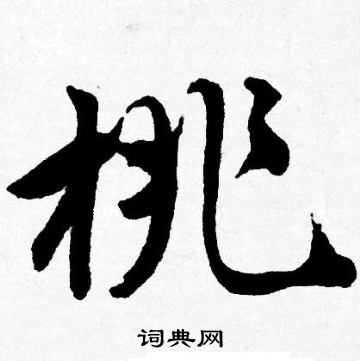 桃
词典网